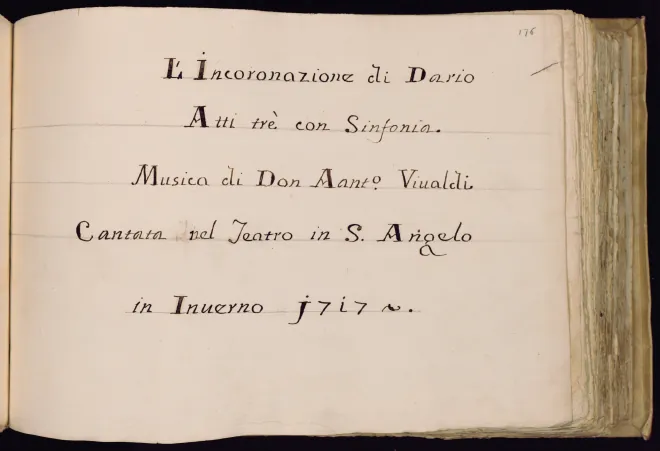 176
L'Incoronazione di Dario
Atti trè con Sinfonia.
Musica di Don Aanto. Viualdi
Cantata nel Teatro in S. Angelo
in Inuerno 1717 ~.